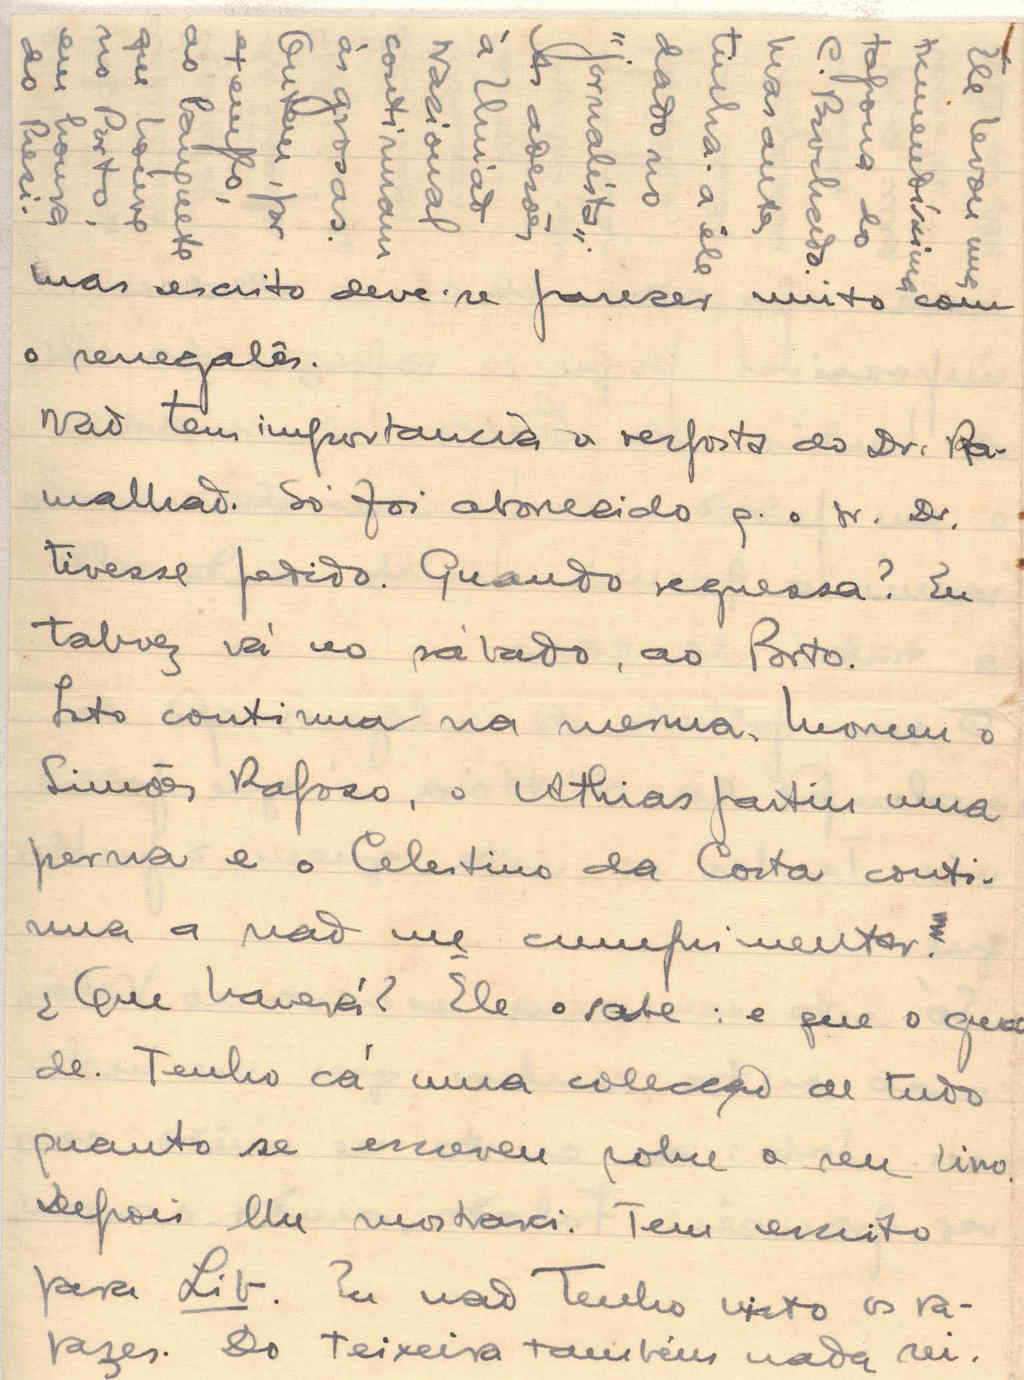 Ele levou uma
tremendíssima
tapona do
C. Brochado.
Mas antes
tinha-a êle
dado no
"jornalista".
As adesões
à Uniaõ
Nacional
continuam
às grosas.
Ontem, por
exemplo,
ao banquete
que houve
no Porto,
em honra
do Presi-
mas escrito deve-se parecer muito com
o senegalês.
Naõ tem importancia a resposta do Dr. Ra-
malhaõ. Só foi aborrecido q. o sr. Dr.
tivesse pedido. Quando regressa? Eu
talvez vá no sábado, ao Porto.
Isto continua na mesma. Morreu o
Simões Raposo, o Athias partiu uma
perna e o Celestino da Costa conti-
nua a naõ me cumprimentar.
¿Que haverá? Ele o sabe: e que o guar
de. Tenho cá uma colecçaõ de tudo
quanto se escreveu sobre o seu livro.
Depois lhu mostrarei. Tem escrito
para Lib. Eu naõ tenho visto os ra-
pazes. Do Teixeira tambêm nada sei.